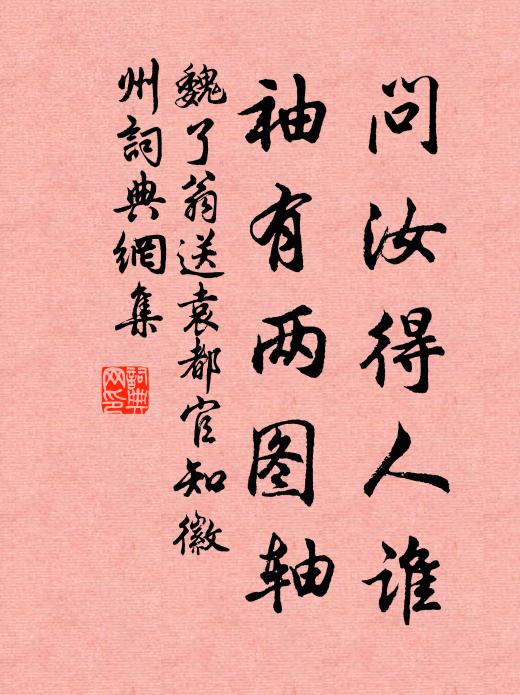 问汝得人谁
袖有两图轴
魏了翁送袁都官知徽
州詞典網集
詞典网印